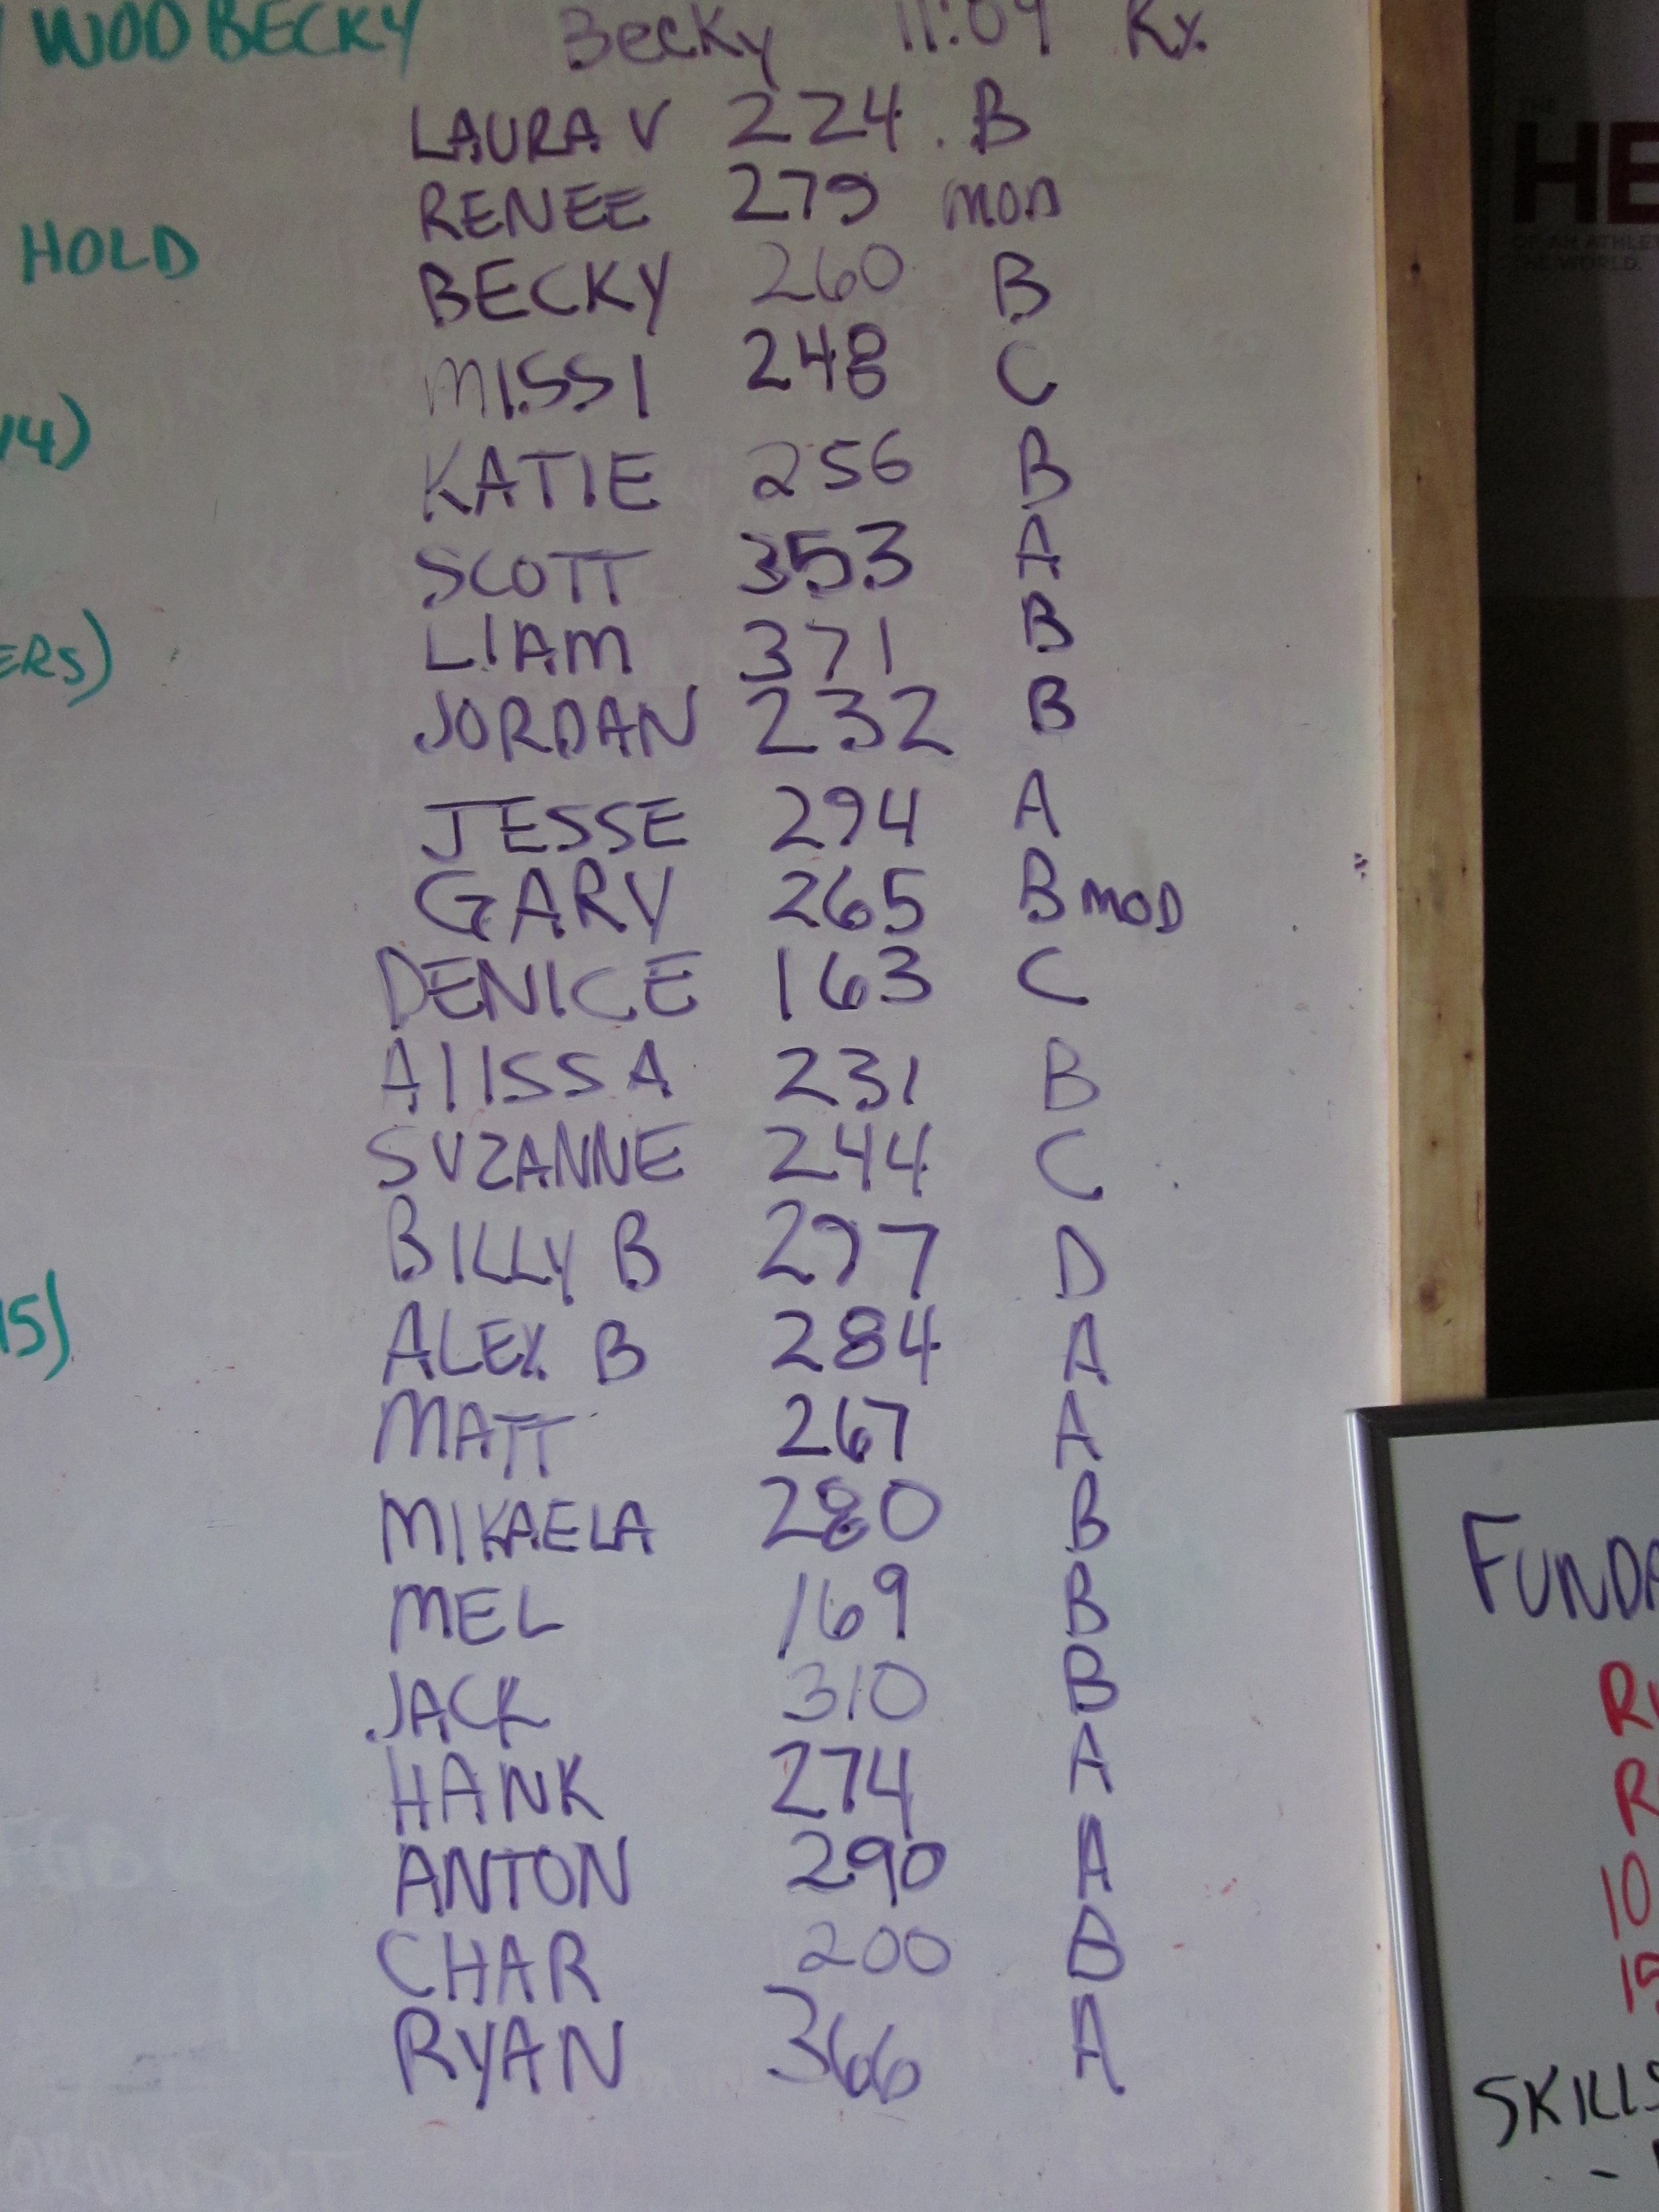 WOD BECKY Becky 11:09 Rx
LAURA V 224 . B
RENEE 279 MOD
HOLD
BECKY 260 B
MISSI 248 C
14)
KATIE 256 B
SCOTT 353 A
LIAM 371 B
ERS)
JORDAN 232 B
JESSE 294 A
GARY 265 B MOD
DENICE 163 C
AlISSA 231 B
SUZANNE 244 C
BILLY B 297 D
15)
ALEX B 284 A
MATT 267 A
MIKAELA 280 B
MEL 169 B
JACK 310 B
HANK 274 A
ANTON 290 A
CHAR 200 B
RYAN 366 A
THE
HE
OF AN ATHLE
THE WORLD.
FUNDA
R
R
10
15
SKILLS
-